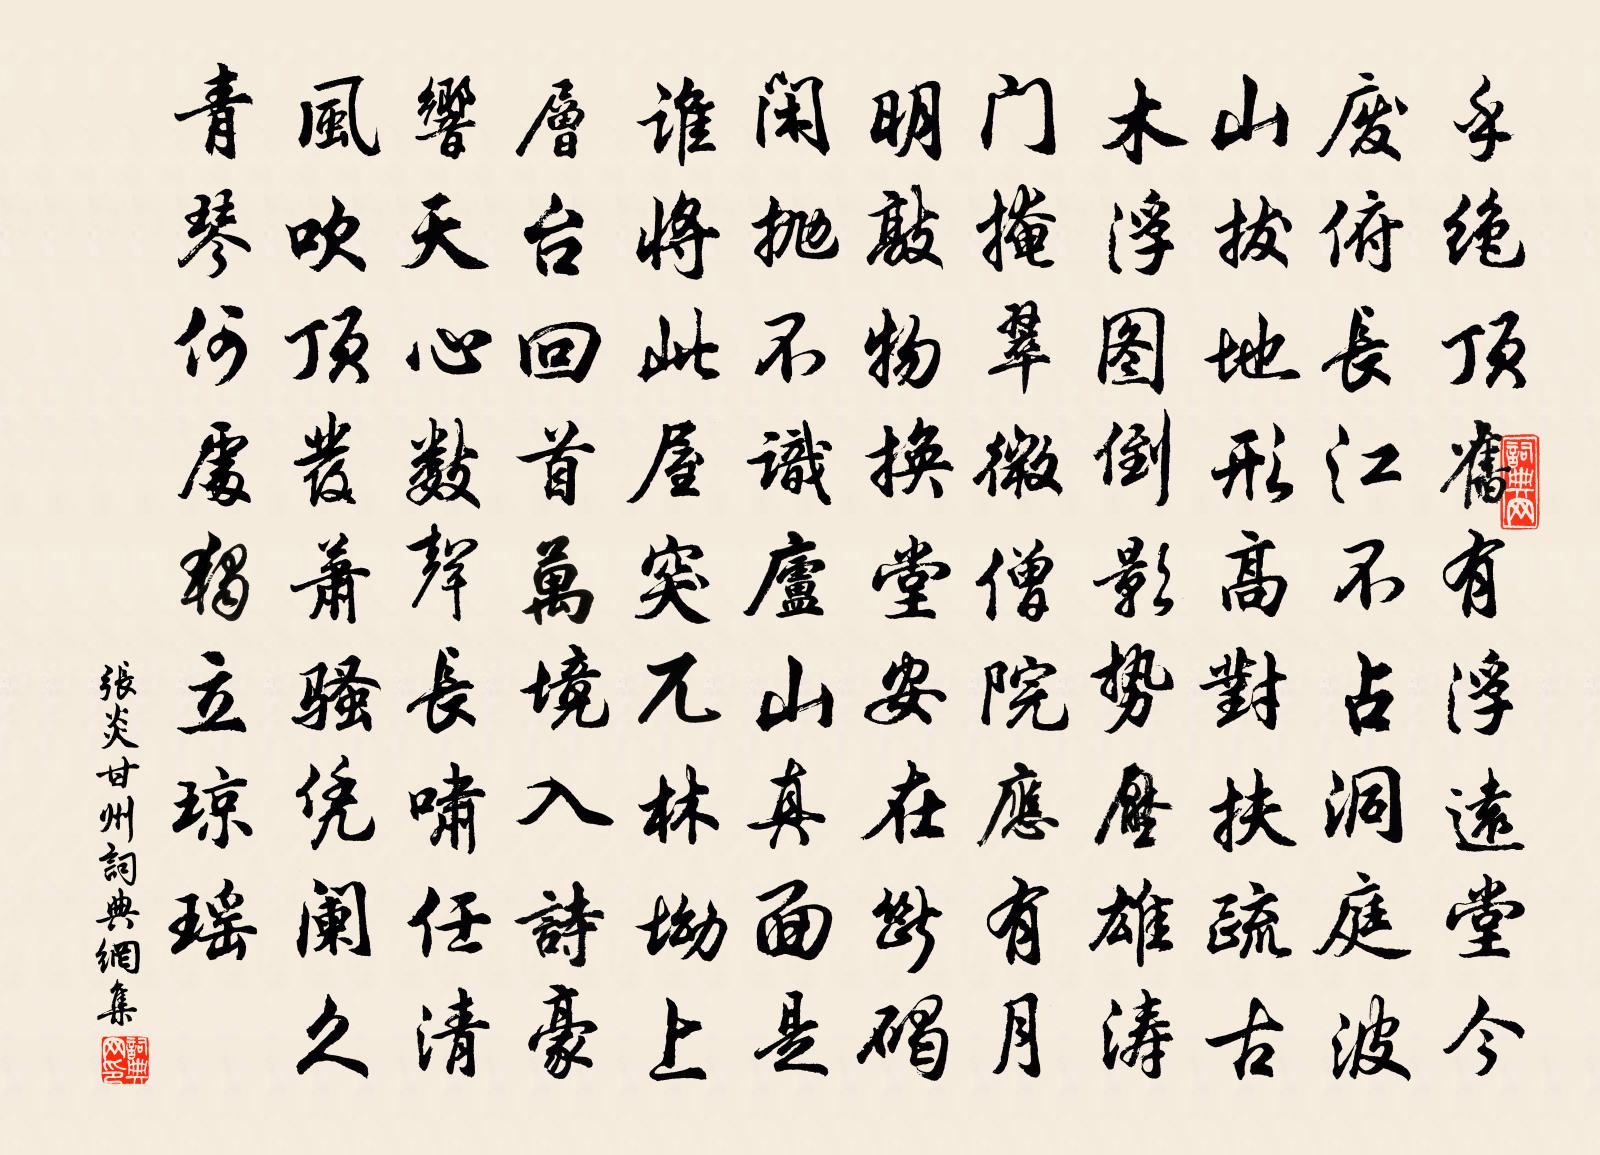 乎绝顶舊有浮遠堂今
废俯長江不占洞庭波
山拔地形高對扶疏古
木浮图倒影势壓雄涛
门掩翠微僧院應有月
明敲物换堂安在斷碣
闲抛不識廬山真面是
谁将此屋突兀林坳上
層台回首萬境入詩豪
響天心數聲長嘯任清
風吹顶發蕭骚凭阑久
青琴何處獨立琼瑶
張炎甘州詞典網集
詞典网
詞典网印